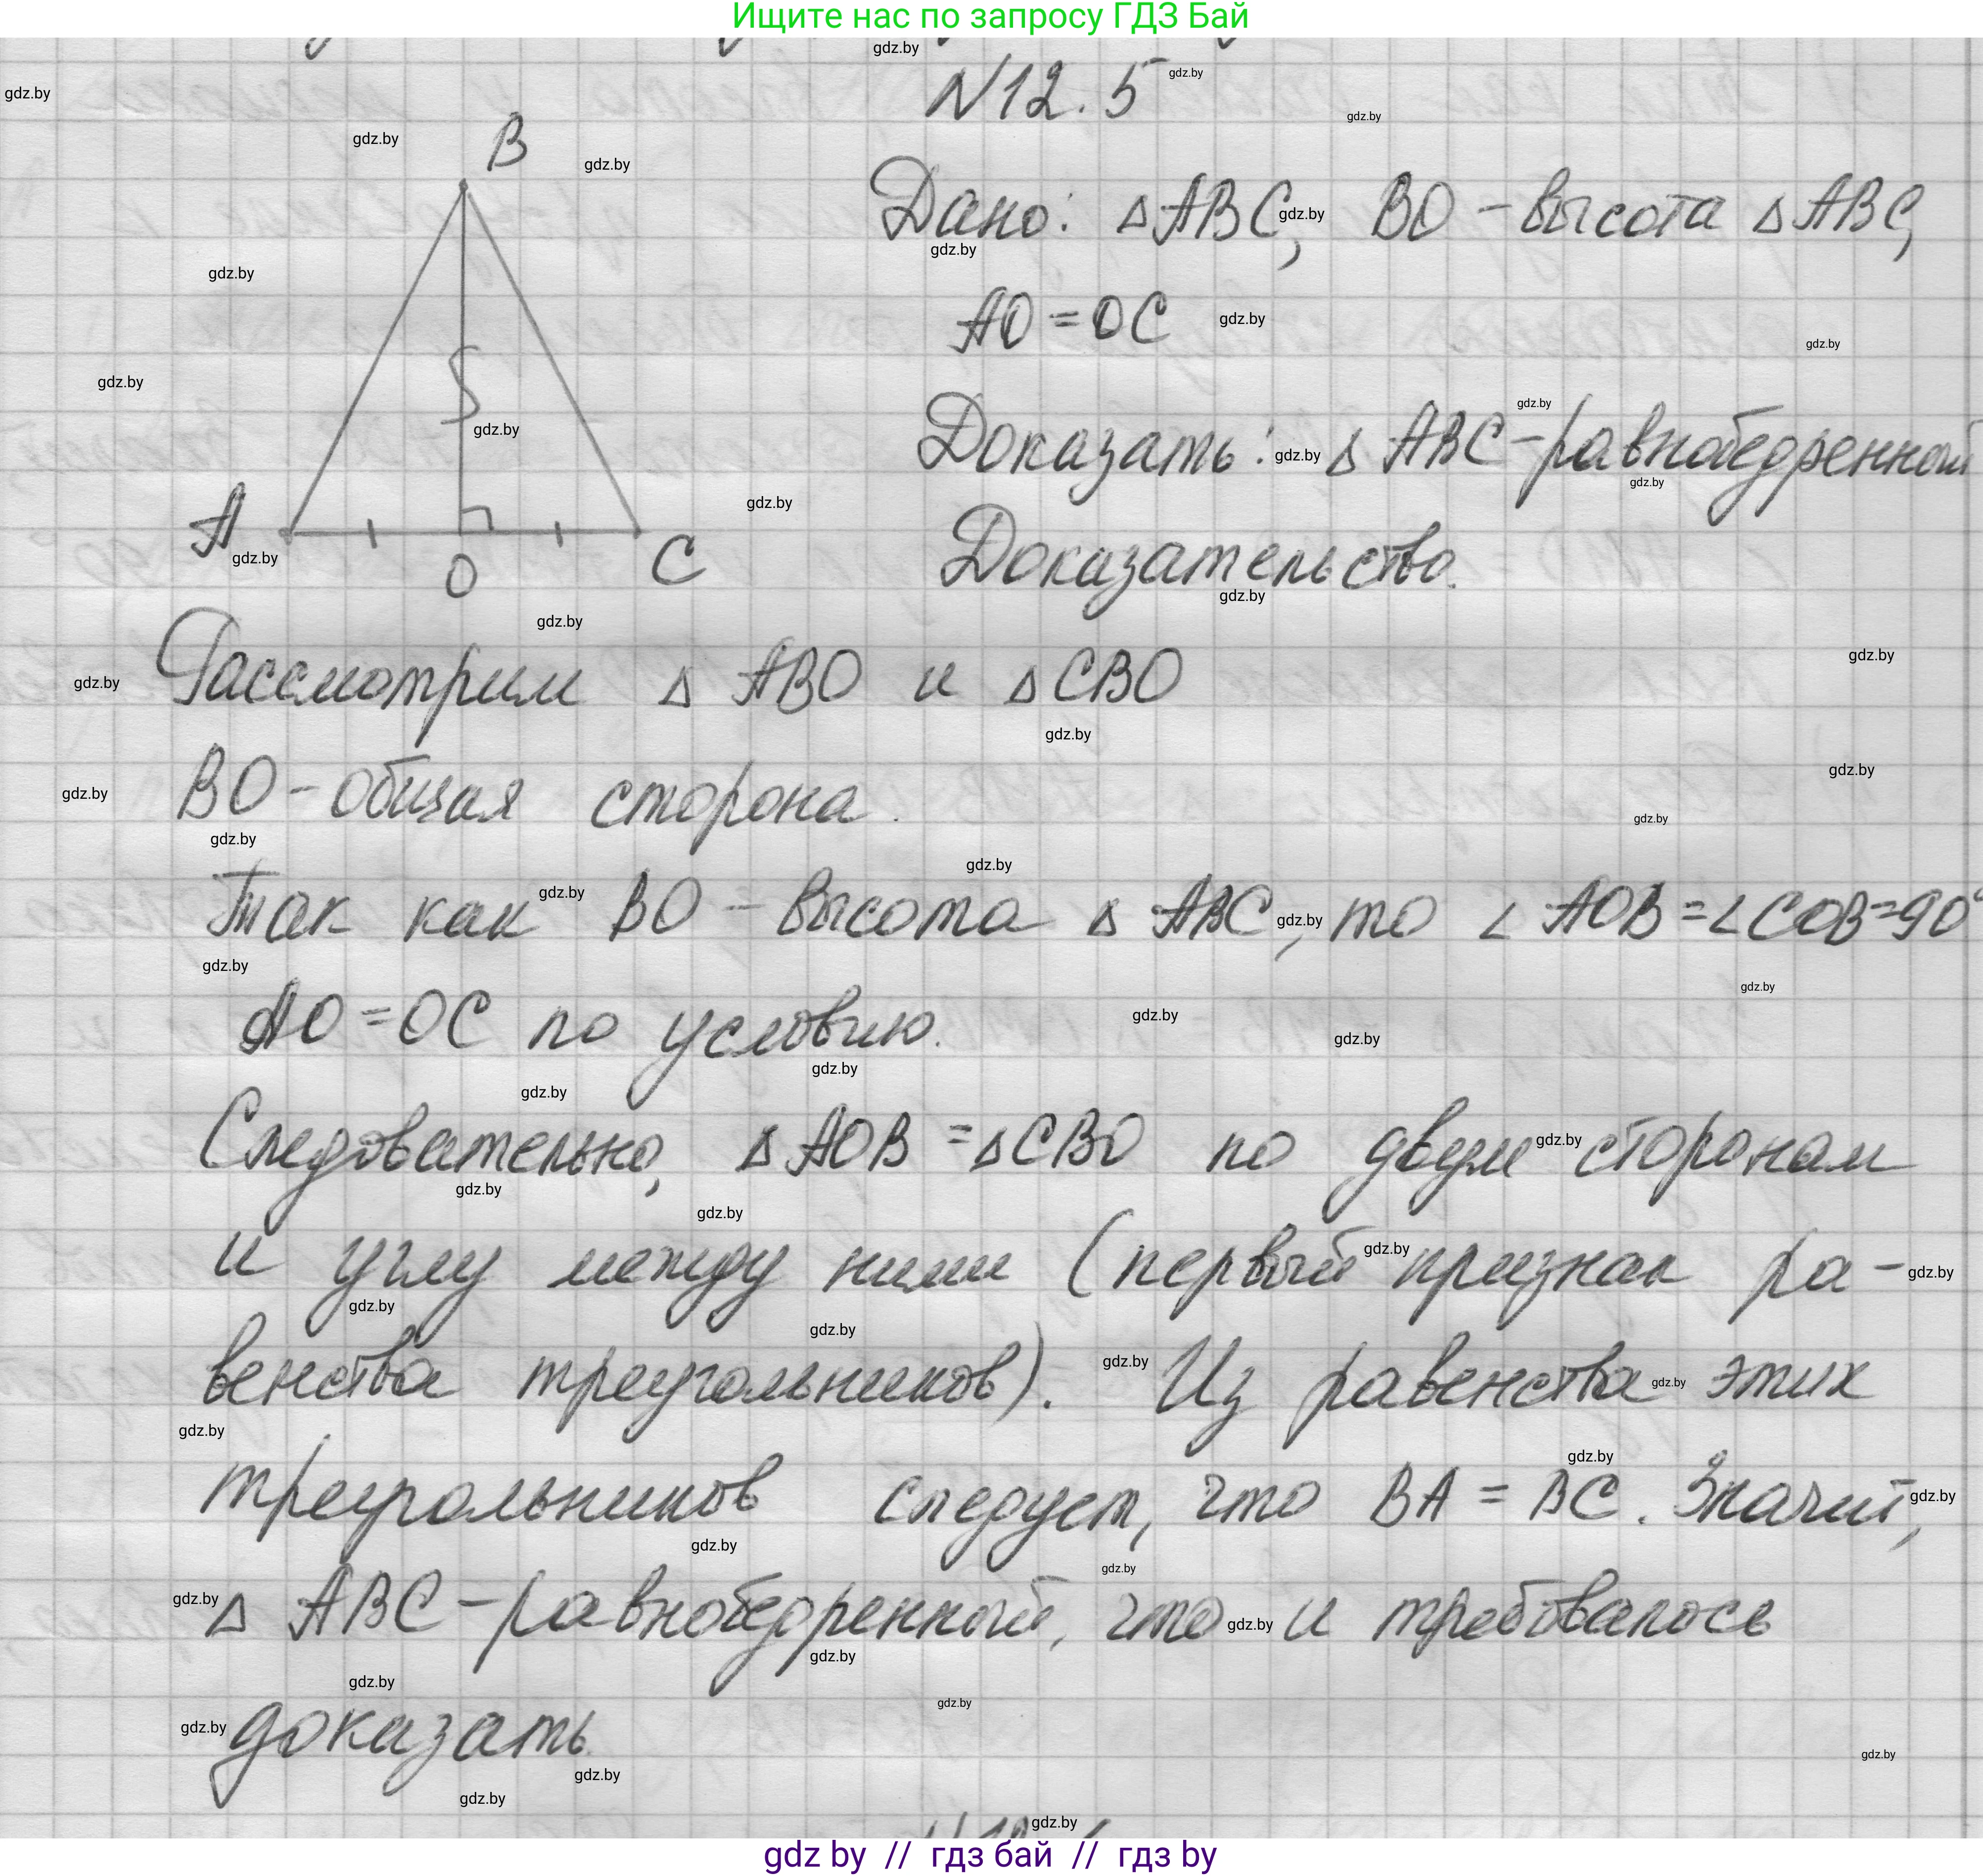 Ищите нас по запросу ГДЗ Бай
N12.5
B
Дано: ΔABC, BO - высота ΔABC,
AO = OC
Доказать: Δ ABC - равнобедренный
A O C
Доказательство.
Рассмотрим Δ ABO и ΔCBO
BO - общая сторона.
Так как BO - высота Δ ABC, то ∠ AOB = ∠COB = 90°
AO = OC по условию.
Следовательно, Δ AOB = ΔCBO по двум сторонам
и углу между ними (первый признак ра-
венства треугольников). Из равенства этих
треугольников следует, что BA = BC. Значит,
Δ ABC - равнобедренный, что и требовалось
доказать.
gdz by // гдз бай // гдз by